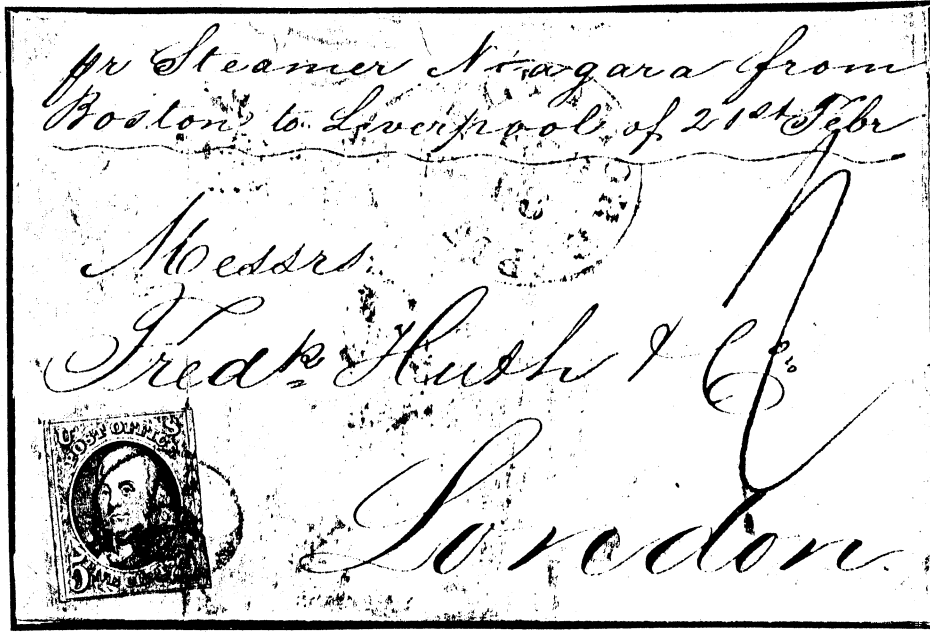 pr Steamer Niagara from
Boston to Liverpool of 21st Febr
Messrs
Fredk Huth & Co.
London.
U S
POST OFFICE
5 FIVE CENTS